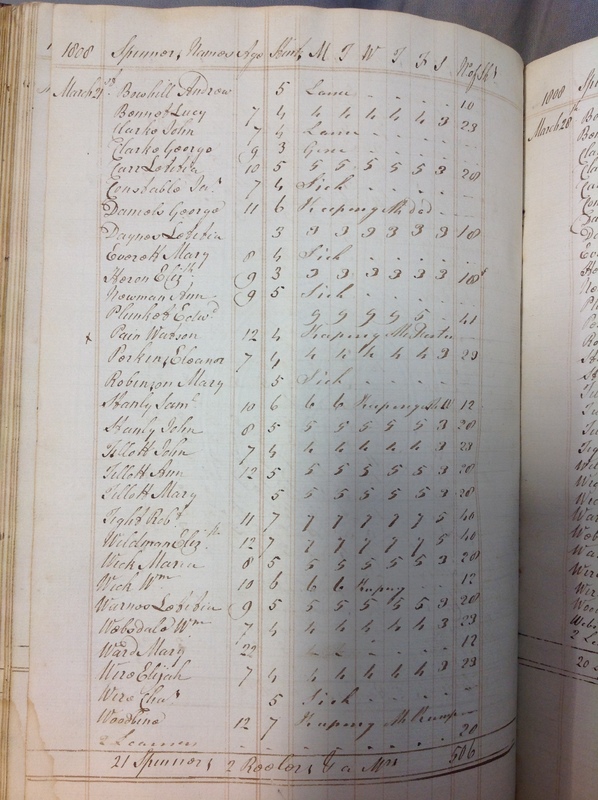 1808 Spinners Names Age Stint M T W T F S No of Sks
March 21st Bowhill Andrew 5 Lame - - - - 10
Bonnet Lucy 7 4 4 4 4 4 4 3 23
Clarke John 7 4 Lame - - - -
Clarke George 9 3 Gone - - - -
Carr Letitia 10 5 5 5 5 5 5 3 28
Constable Jas 7 4 Sick - - - -
Daniels George 11 6 Keeping
Daynes Letitia 3 3 3 3 3 3 3 18
Everett Mary 8 4 Sick - - - -
Heron Elizth 9 3 3 3 3 3 3 3 18
Newman Ann 9 5 Sick - - - -
Plunket Edwd 9 9 9 9 5 - 41
x Pain Watson 12 4 Keeping
Perkins Eleanor 7 4 4 4 4 4 4 3 23
Robinson Mary 5 Sick - - - -
Stanly Saml 10 6 6 6 Keeping 12
Stanly John 8 5 5 5 5 5 5 3 28
Tillott John 7 4 4 4 4 4 4 3 23
Tillott Ann 12 5 5 5 5 5 5 3 28
Tillott Mary 5 5 5 5 5 5 3 28
Tight Robt 11 7 7 7 7 7 7 5 40
Wildman Elizth 12 7 7 7 7 7 7 5 40
Wick Maria 8 5 5 5 5 5 5 3 28
Wick Wm 10 6 6 6 Keeping - - 12
Warnes Letitia 9 5 5 5 5 5 5 3 28
Websdale Wm 7 4 4 4 4 4 4 3 23
Ward Mary 22 - - - - 12
Wire Elijah 7 4 4 4 4 4 4 3 23
Wire Chas 5 Sick - - - -
Woodbine 12 7 Keeping
2 Learners - - - - - - 20
21 Spinners 2 Reelers & a Mrs 506
1808
March 28th